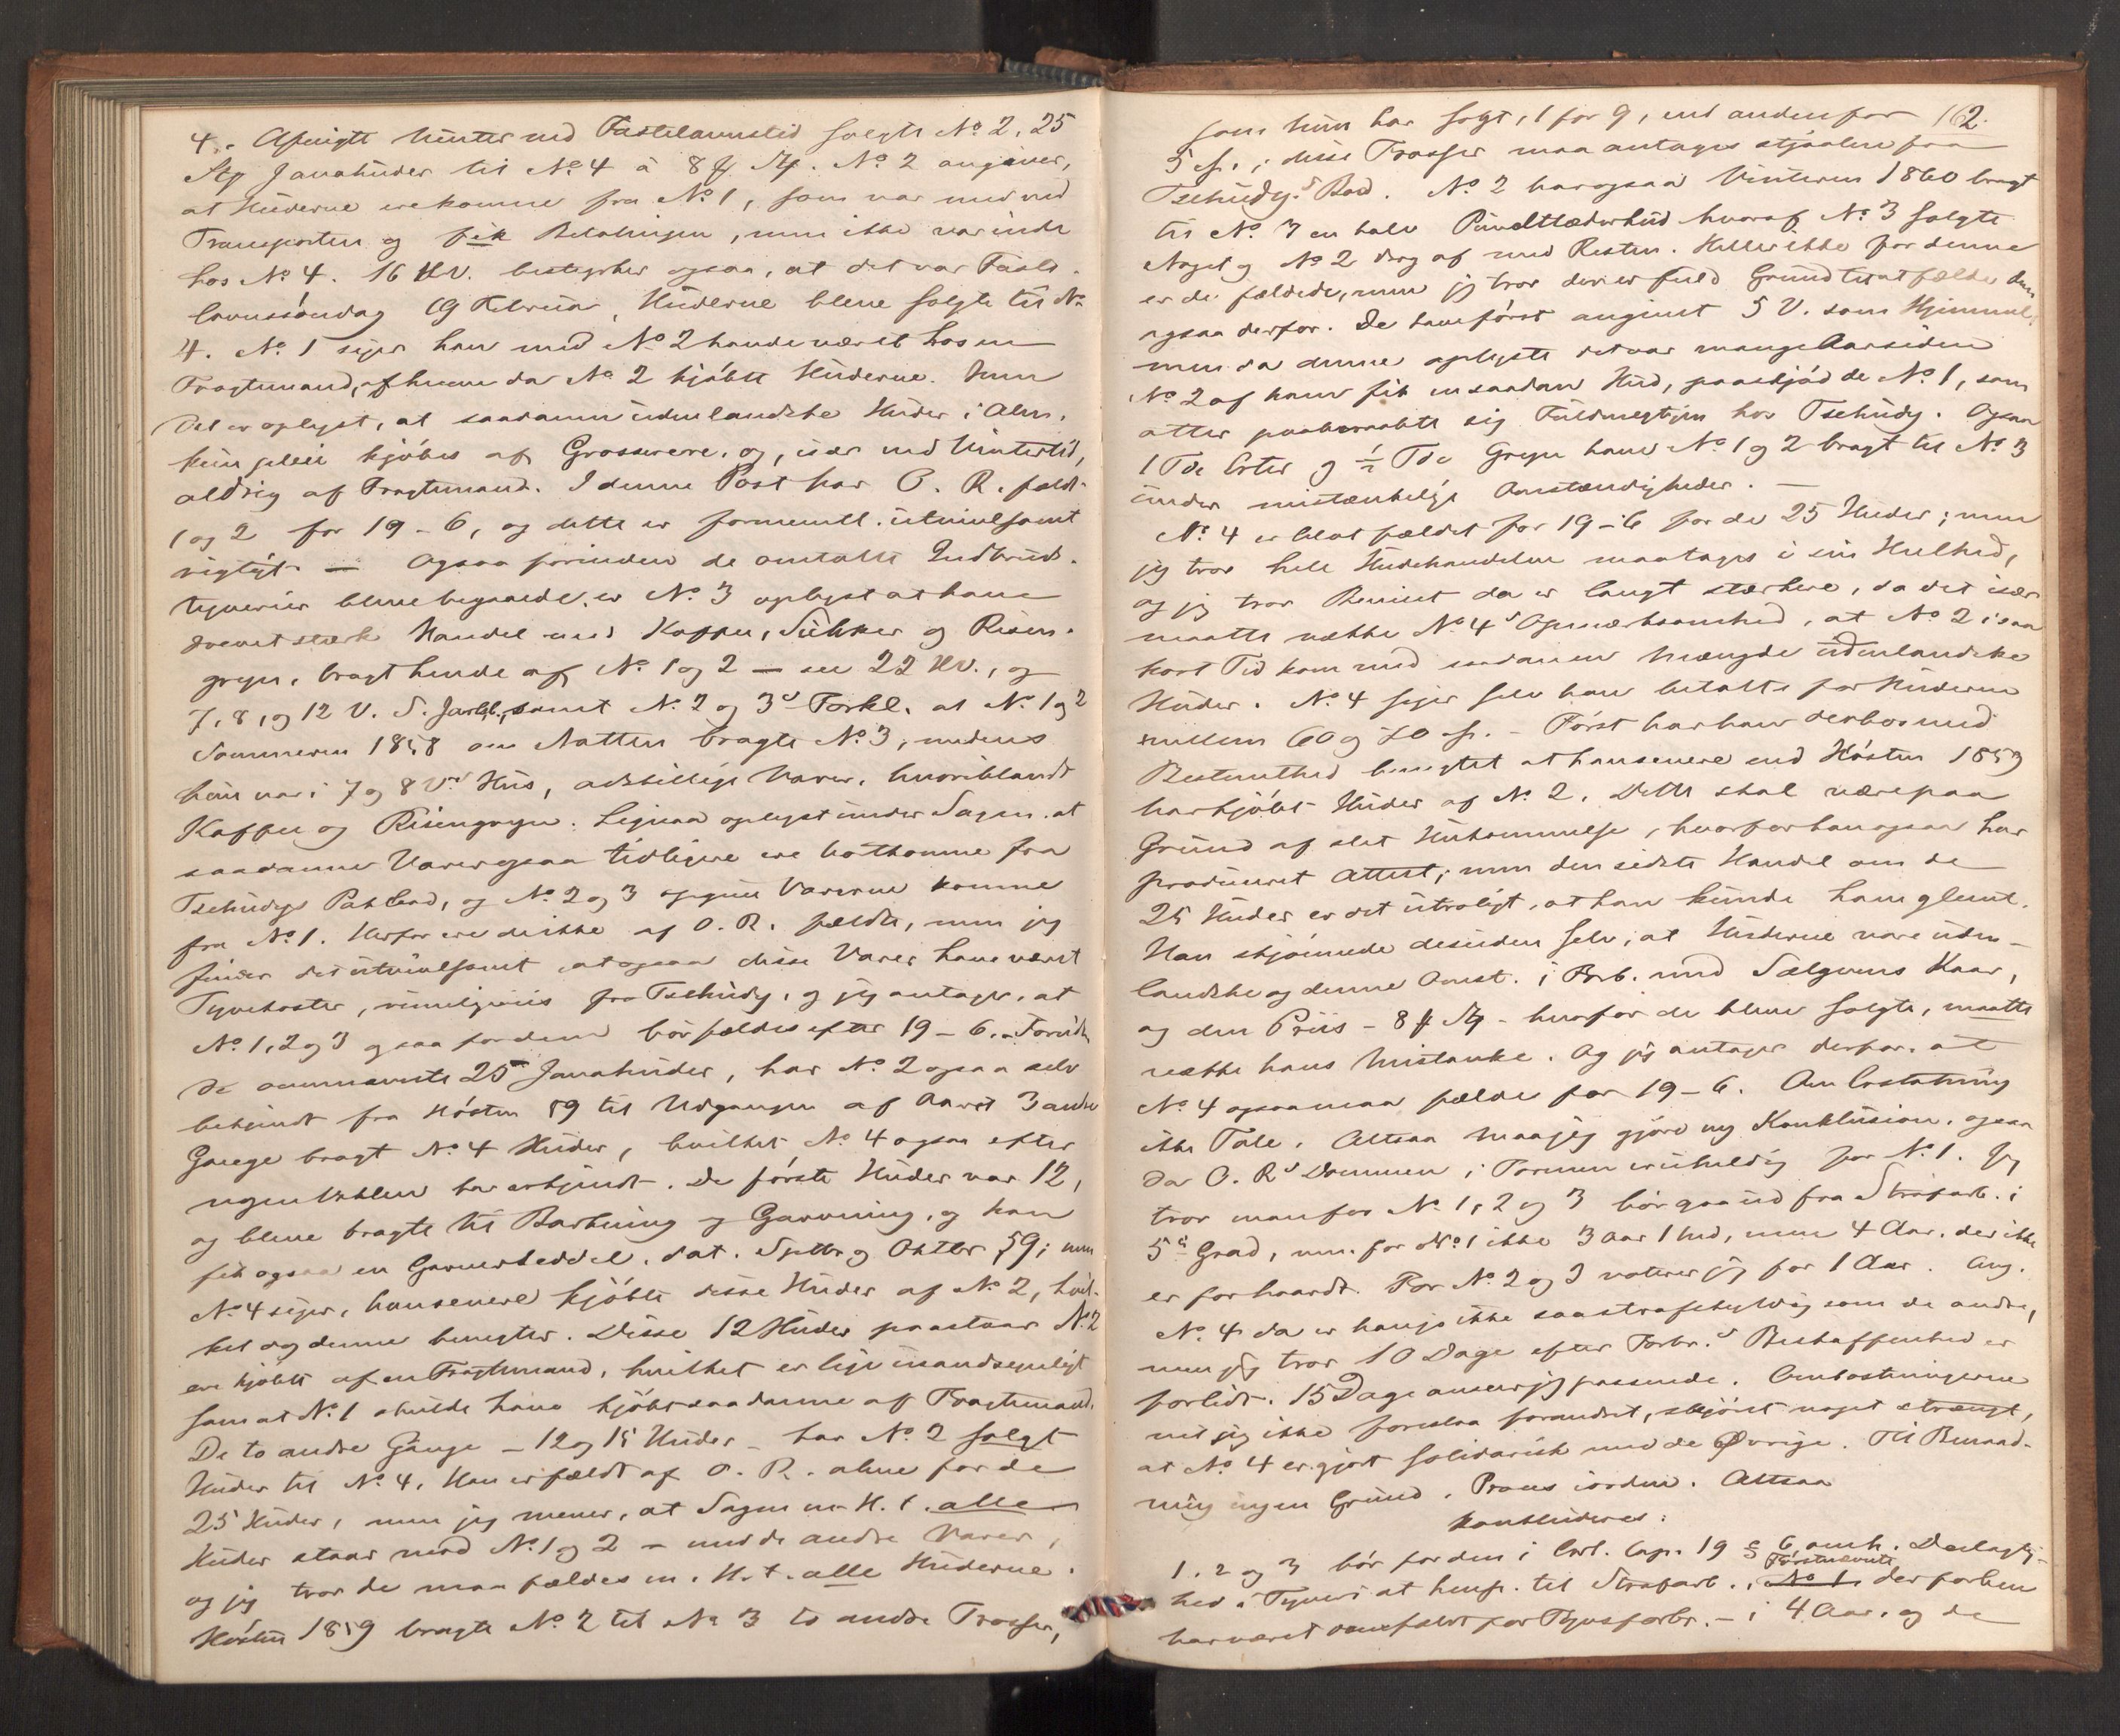 4,- Afvigte Vinter ved Fastelavnstid solgte No 2, 25
Stk Javahuder til No 4 à 8 ſ Stk. No 2 angiver,
at Huderne ere komne fra No 1, som var med ved
Transporten og fik Betalingen, men ikke var inde
hos No 4. 16 HV. bestyrker ogsaa, at det var Faste-
lavnssöndag 19 Februar, Huderne bleve solgte til No
4. No 1 siger han med No 2 havde været hos en
Fragtemand, af hvem da No 2 kjöbte Huderne. Men
det er oplyst, at saadanne udenlandske Huder i Alm.
kun pleie kjöbes af Grosserere, og, især ved Vintertid,
aldrig af Fragtemænd. I denne Post har O. R. fældt
1 og 2 for 19-6, og dette er formentl. utvivlsomt
rigtigt — Ogsaa forinden de omtalte Indbruds-
tyverier bleve begaaede, er No 3 oplyst at have
drevet stærk Handel med Kaffee, Sukker og Risen-
gryn, bragt hende af No 1 og 2 — se 22 HV., og
7, 8, og 12 V. S. samt No 2 og 3s Forkl. at No 1 og 2
Sommeren 1858 om Natten bragte No 3, medens
hun var i 7 og 8 Vs Hus, adskillige Varer, hvoriblandt
Kaffee og Risengryn. Ligesaa oplyst under Sagen at
saadanne Varer ogsaa tidligere ere bortkomne fra
Tschudys Pakbod, og No 2 og 3 opgive Varerne komne
fra No 1. Herfor ere de ikke af O. R. fældte, men jeg
finder det utvivlsomt, at ogsaa disse Varer have været
Tyvekoster, rimeligviis fra Tschudy, og jeg antager, at
No 1, 2 og 3 ogsaa for dem bör fældes efter 19-6. - Foruden
de ommeldte 25 Javahuder, har No 2 ogsaa selv
bekjendt fra Hösten 59 til Udgangen af Aaret 3 andre
Gange bragt No 4 Huder, hvilket No 4 ogsaa efter
megen Vaklen har erkjendt. De förste Huder var 12,
og bleve bragte til Barkning og Garvning, og han
fik ogsaa en Garverseddel, dat. Septbr og Oktbr 59; men
No 4 siger, han senere kjöbte disse Huder af No 2, hvil-
ket og denne benegter. Disse 12 Huder paastaar No 2
ere kjöbte af en Fragtemand, hvilket er lige usandsynligt
som at No 1 skulde have kjöbt saadanne af Fragtemænd.
De to andre Gange — 12 og 15 Huder — har No 2 solgt
Huder til No 4. Han er fældt af O. R. alene for de
25 Huder, men jeg mener, at Sagen m. H. t. alle
Huder staar mod No 1 og 2 — med de andre Varer,
og jeg tror de maa fældes m. H. t. alle Huderne.
Hösten 1859 bragte No 2 til No 3 to andre Trosser,
162.
som hun har solgt, 1 for 9, end anden for
5 ſ.; disse Trosser maa antages stjaalne fra
Tschudys Bod. No 2 har ogsaa Vinteren 1860 bragt
til No 3 en halv Pundlæderhud hvoraf No 3 solgte
Noget og No 2 drog af med Resten. Heller ikke for denne
er de fældede, men jeg tror der er fuld Grund til at fælde dem
ogsaa derfor. De have först angivet 5 V. som Hjemmel,
men da denne oplyste det var mange Aar siden
No 2 af ham fik en saadan Hud, paaskjöd de No 1, som
atter paaberaabte sig Fuldmægtigen hos Tschudy. Ogsaa
1 Tde Erter og ½ Tde Gryn have No 1 og 2 bragt til No 3
under mistænkelige Omstændigheder. —
No 4 er blot fældet for 19-6 for de 25 Huder; men
jeg tror hele Hudehandelen maa tages i sin Helhed,
og jeg tror Beviset da er langt stærkere, da det især
maatte vække No 4s Opmærksomhed, at No 2 i saa
kort Tid kom med saadanen Mængde udenlandske
Huder. No 4 siger selv han betalte for Huderne
mellem 60 og 70 ſ. — Först har han derhos med
Bestemthed benegtet at han senere end Hösten 1859
har kjöbt Huder af No 2. Dette skal være paa
Grund af slet Hukommelse, hvorfor han ogsaa har
produceret Attest; men den sidste Handel om de
25 Huder er det utroligt, at han kunde have glemt.
Han skjönnede desuden selv, at Huderne vare uden-
landske og denne Omst. i Forb. med Sælgerens Kaar,
og den Priis — 8 ſ Stk — hvorfor de bleve solgte, maatte
vække hans Mistanke. Og jeg antager derfor, at
No 4 ogsaa maa fældes for 19-6. Om Erstatning
ikke Tale. Altsaa maa jeg gjöre ny Konklusion, ogsaa
da O. Rs Dommen i Formen er uheldig for No 1. Jeg
tror man for No 1, 2 og 3 bör gaa ud fra Strafarb. i
5te Grad, men for No 1 ikke 3 Aar 1 Md, men 4 Aar, der ikke
er for haardt. For No 2 og 3 voterer jeg for 1 Aar. Ang.
No 4 da er han jo ikke saa strafskyldig som de andre,
men jeg tror 10 Dage efter Forbr.s Beskaffenhed er
for lidt. 15 Dage anser jeg passende. Omkostningerne
vil jeg ikke foreslaa forandret, skjönt noget strengt,
at No 4 er gjort solidarisk med de Övrige. Til Benaad-
ning ingen Grund. Proces i orden. Altsaa
konkluderes:
1, 2 og 3 bör for den i Crl. Cap. 19 § 6 omh. Delagtig-
hed i Tyveri at hens. til Strafarb., <s>No 1</s> Förstnævnte der forhen
har været domfældt for Tyvsforbr. — i 4 Aar, og de